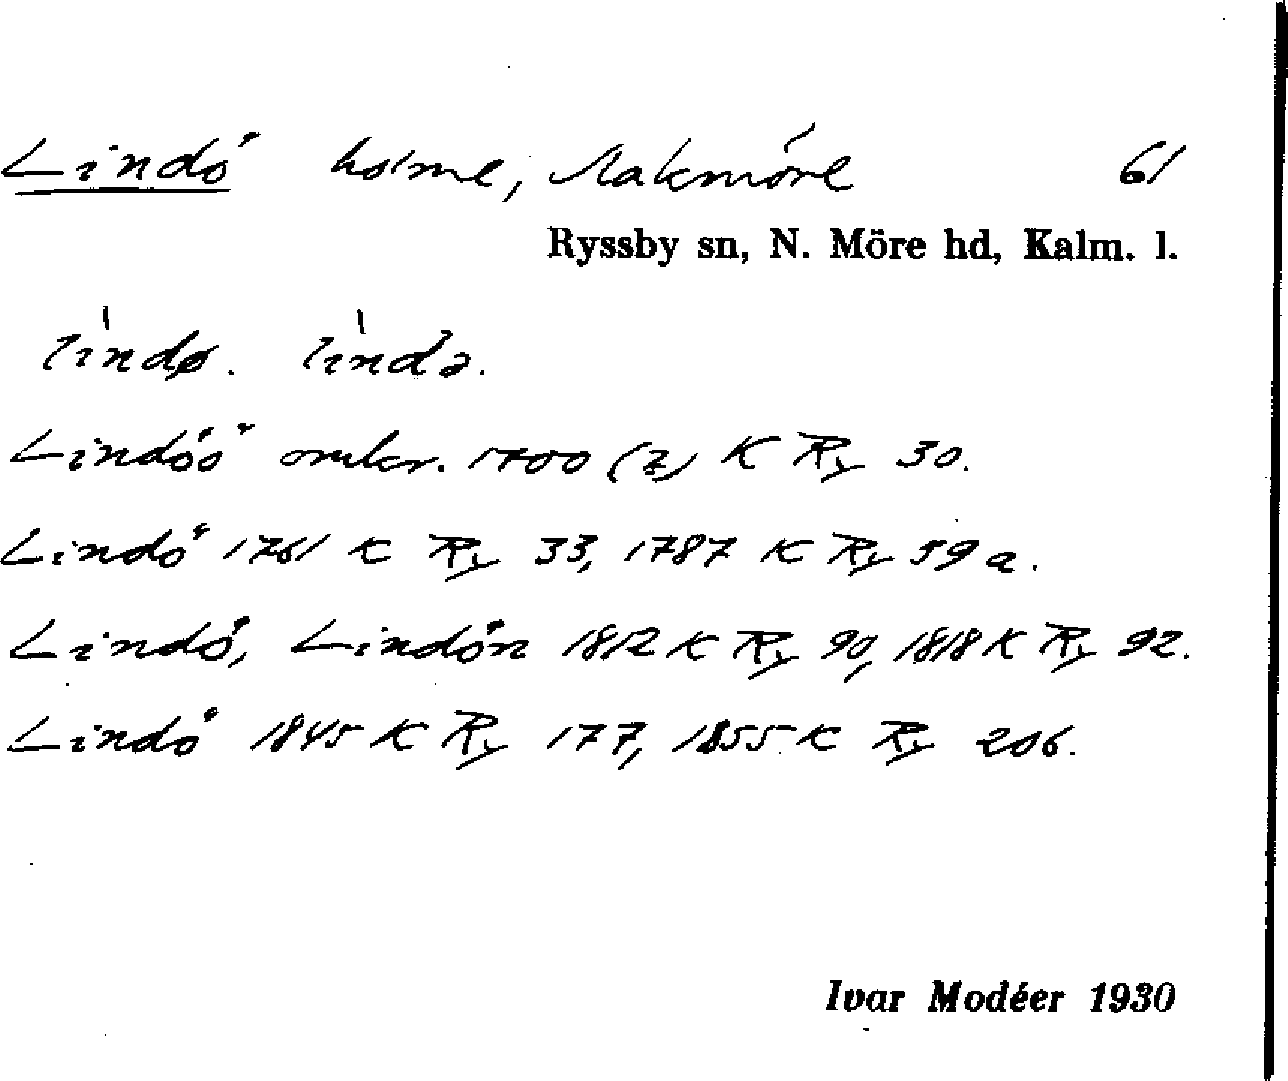 Lindö holme, Rakmöre 61
Ryssby sn, N. Möre hd, Kalm. l.
lìndø. lìndə.
Lindöö omkr. 1700 (?) K Ry 30.
Lindö 1761 K Ry 33, 1787 K Ry 59 a.
Lindö, Lindön 1812 K Ry 90, 1818 K Ry 92.
Lindö 1845 K Ry 177, 1855 K Ry 206.
Ivar Modéer 1930